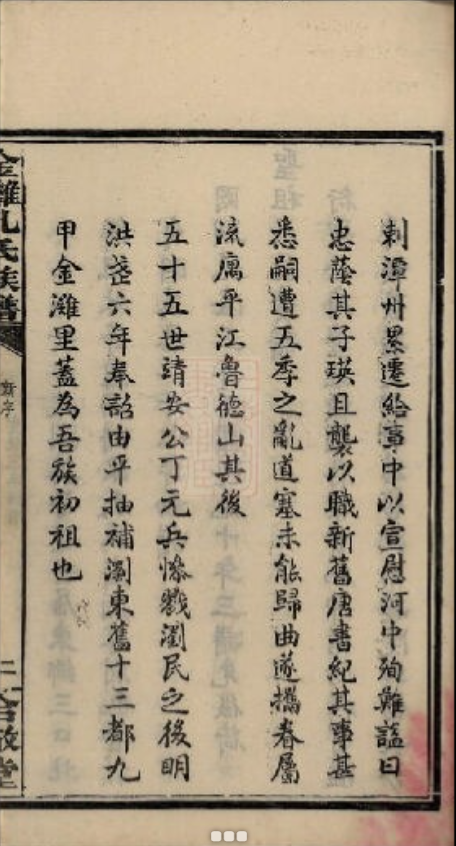 刺潭州累遷給事中以宣慰河中殉難諡曰
忠蔭其子瑛且襲以職新舊唐書紀其事甚
悉嗣遭五季之亂道塞未能歸曲遂攜眷屬
流寓平江魯德山其後
五十五世靖安公丁元兵慘戮瀏民之後明
洪武六年奉詔由平抽補瀏東舊十三都九
甲金灘里蓋為吾族初祖也
金灘孔氏族譜
新序
二
合敬堂